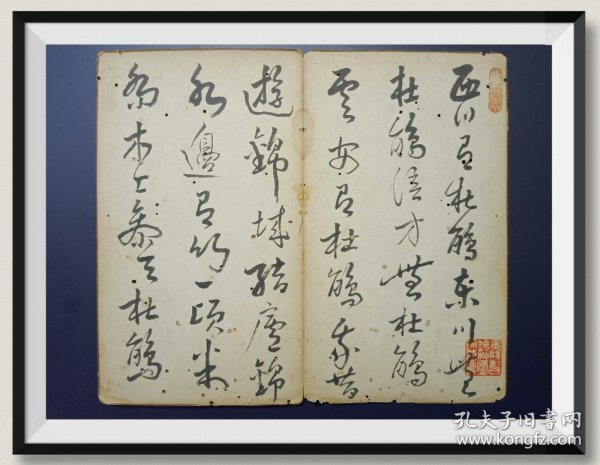 西川有杜鵑東川無
杜鵑涪万無杜鵑
雲安有杜鵑我昔
遊錦城結廬錦
水邊有竹一頃余
喬木上參天杜鵑
孔夫子旧书网
www.kongfz.com